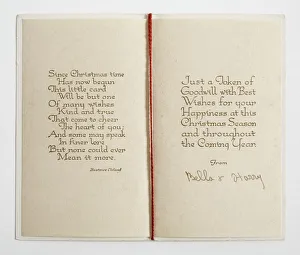 Since Christmas time
Has now begun
This little card
Will be but one
Of many wishes
Kind and true
That come to cheer
The heart of you
And some may speak
In finer lore
But none could ever
Mean it more.
Just a Token of
Goodwill with Best
Wishes for your
Happiness at this
Christmas Season
and throughout
the Coming Year
From
Bella & Harry